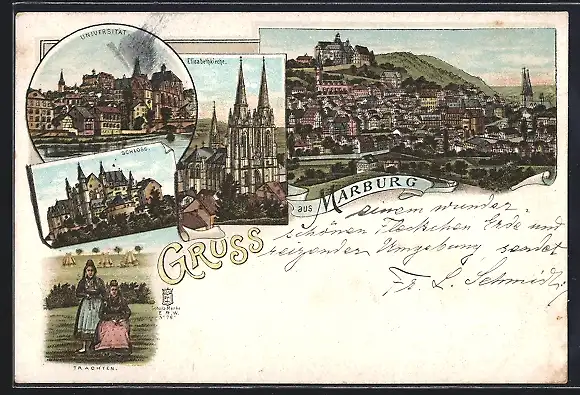 UNIVERSITÄT.
Elisabethkirche.
SCHLOSS.
GRUSS
aus MARBURG
einem wunder-
schönen Fleckchen Erde und
reizender Umgebung sendet
Fr. L. Schmidt
Schutz-Marke
TRACHTEN.